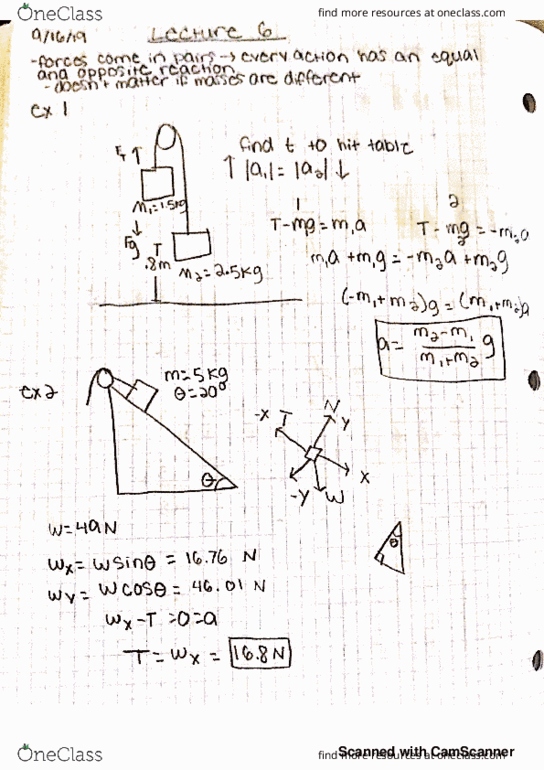 OneClass
find more resources at oneclass.com
9/16/19
Lecture 6
-forces come in pairs → every action has an equal
and opposite reaction
- doesn't matter if masses are different
ex 1
find t to hit table
↑ |a₁| = |a₂| ↓
F_T ↑
m₁=1.5kg
Fg
T
.8m
m₂=2.5kg
1
T-mg=m₁a
2
T-m₂g=-m₂a
m₁a+m₁g=-m₂a+m₂g
(-m₁+m₂)g=(m₁+m₂)a
a= (m₂-m₁)/(m₁+m₂) g
ex 2
m=5kg
θ=20°
θ
-x T
N
y
x
-y
W
θ
W=49N
Wx=Wsinθ=16.76 N
Wy=Wcosθ=46.01 N
Wx-T=0=a
T=Wx=16.8N
OneClass
find more resources at oneclass.com
Scanned with CamScanner